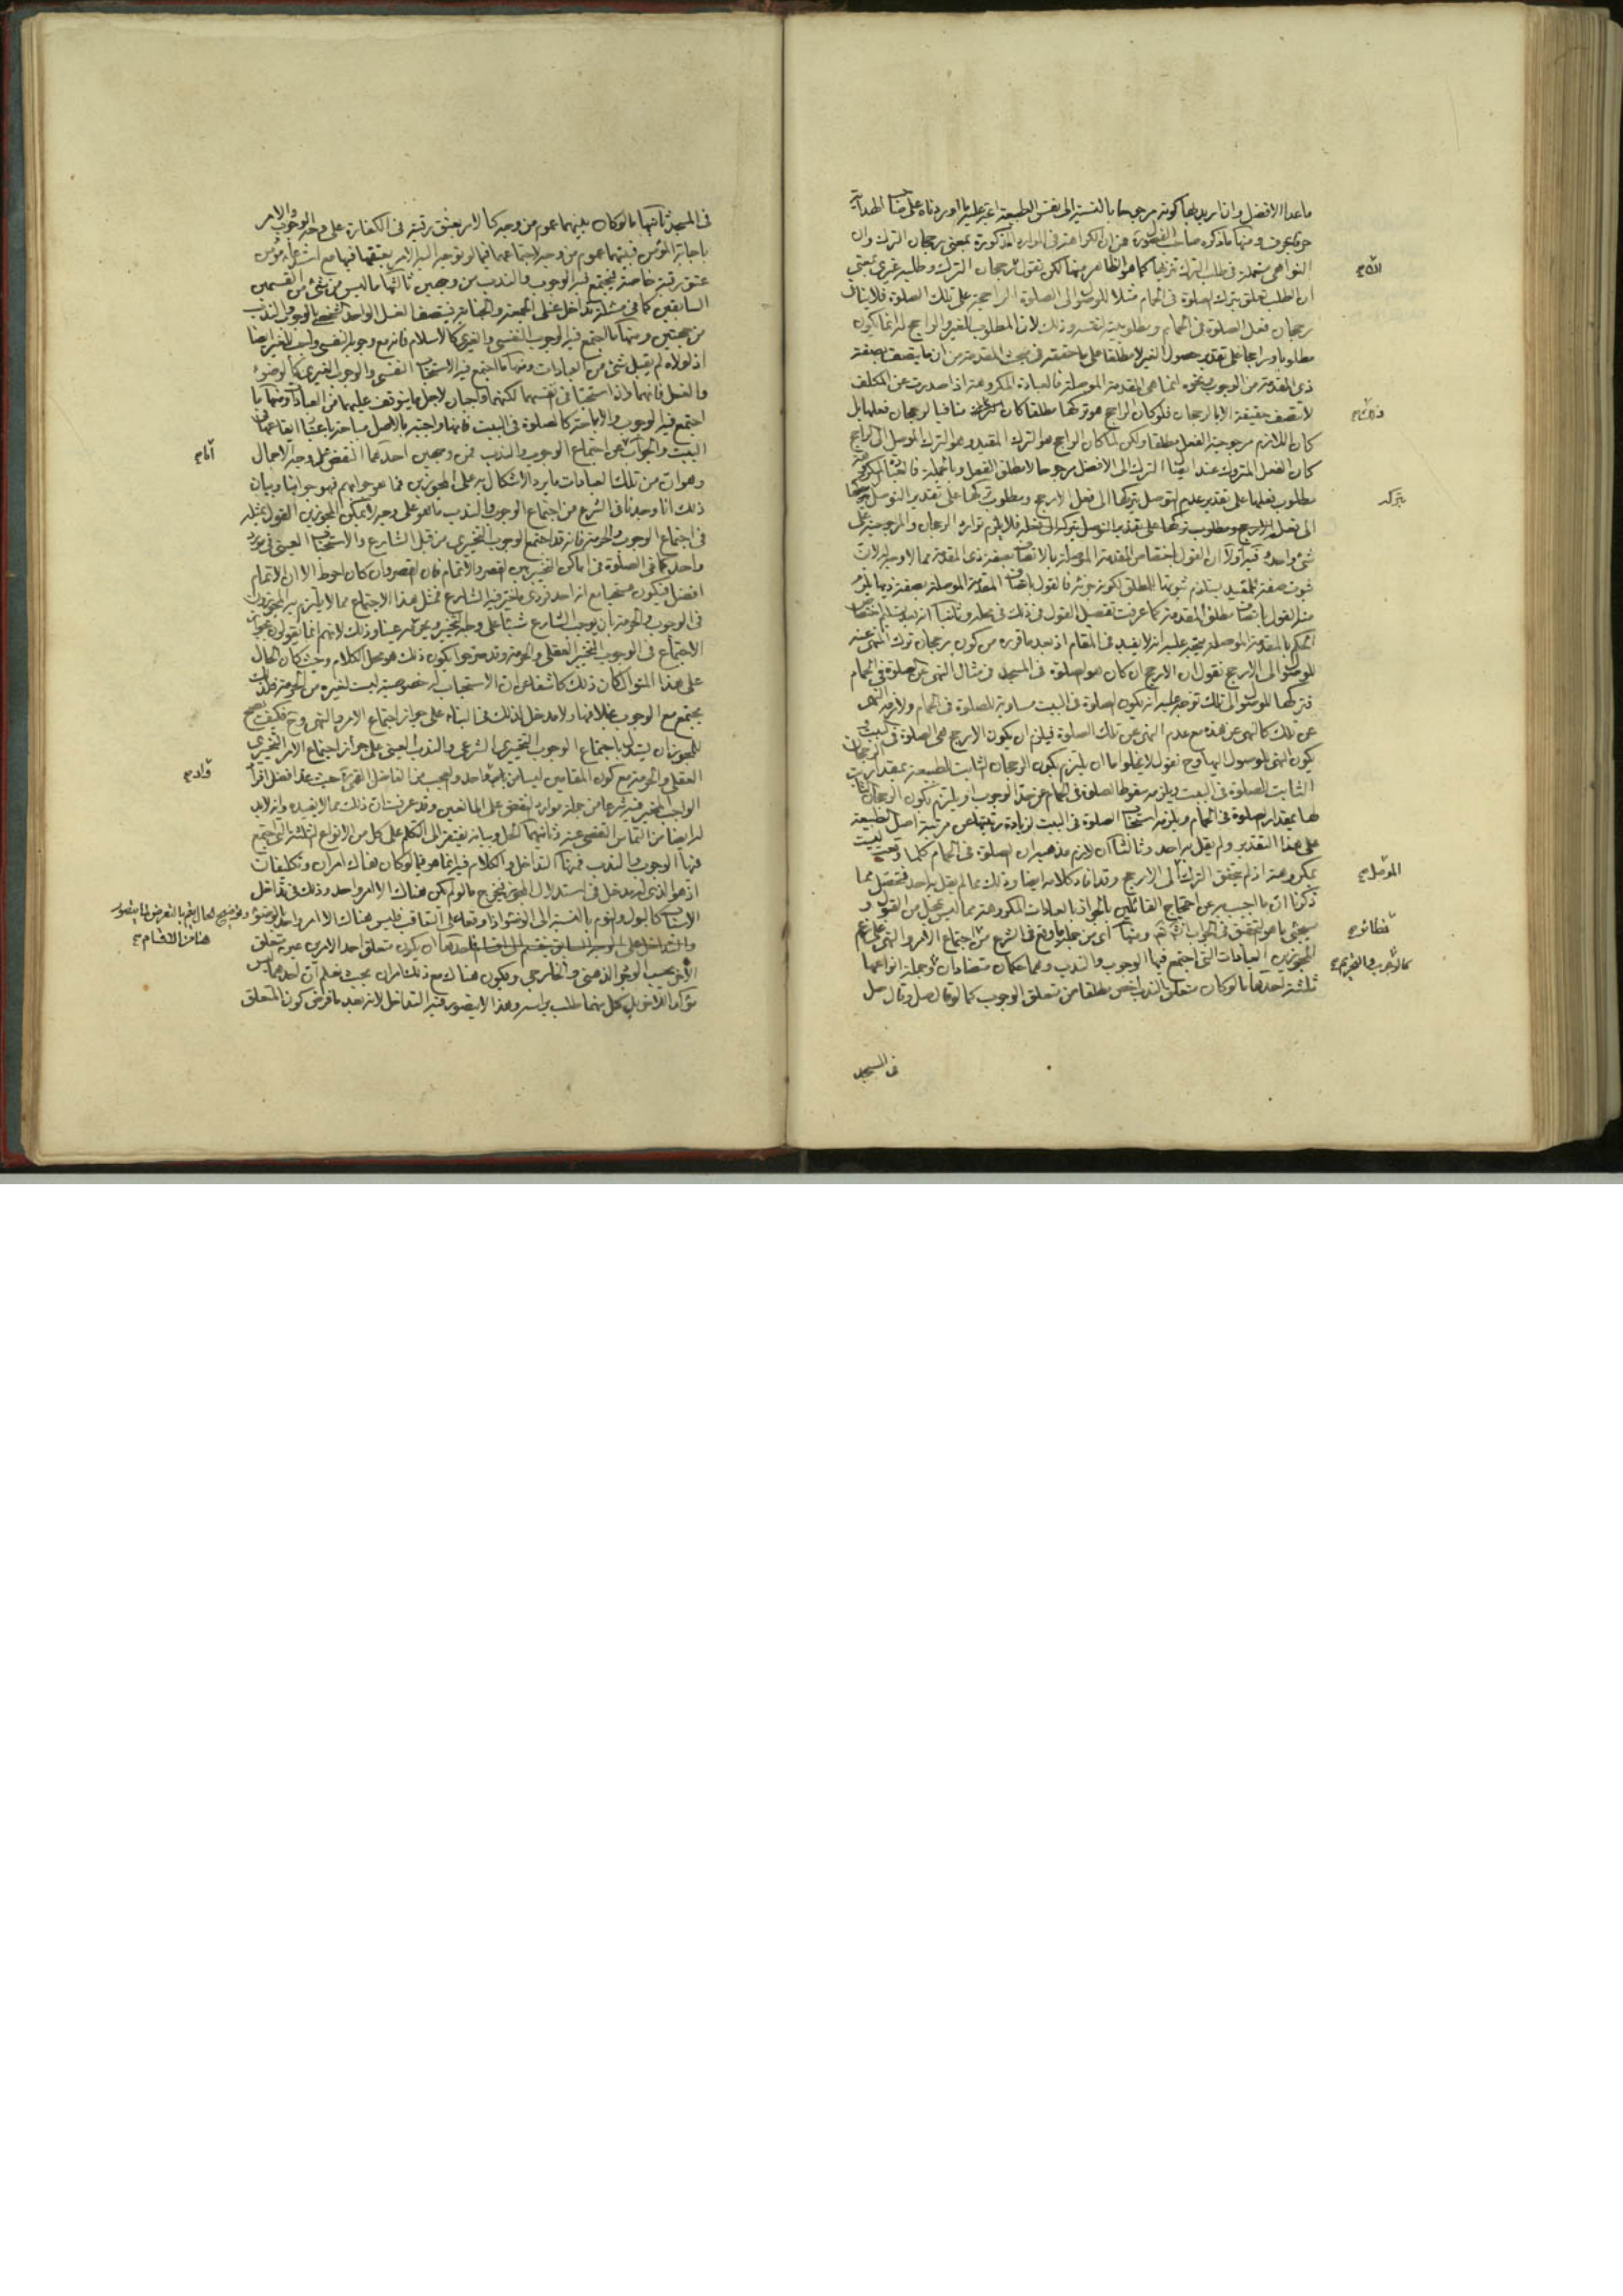 ما عدا الافضل وانا نريد بها كونه مرجوحا بالنسبة الى نفس الطبيعة
ومنها ما ذكره صاحب الفصول من ان الكراهة فى الموارد المذكورة بمعنى رجحان الترك وان
النواهى مستعملة فى طلب الترك تنزيها كما هو الظاهر منها لكن نقول رجحان الترك وطلبه غيرى بمعنى
ان الطلب تعلق بترك الصلوة فى الحمام مثلا للتوصل الى الصلوة الراجحة على تلك الصلوة فلا ينافى
رجحان فعل الصلوة فى الحمام ومطلوبيته لنفسه وذلك لان المطلوب للغير والراجح له انما يكون
مطلوبا وراجحا على تقدير حصول الغير لا مطلقا على ما حققه فى بحث المقدمة من ان ما يتصف بصفة
ذى المقدمة من الوجوب ونحوه انما هى المقدمة الموصلة فالعبادة المكروهة اذا صدرت عن المكلف
لا تتصف حقيقة الا بالرجحان فلو كان الراجح هو تركها مطلقا كان منافيا لرجحان فعلها بل
كان اللازم مرجوحية الفعل مطلقا ولكن لما كان الراجح هو الترك المقيد وهو الترك الموصل الى الراجح
كان الفعل المتروك عند الترك الى الافضل مرجوحا لا مطلق الفعل وبالجملة
مطلوب فعلها على تقدير عدم التوصل بتركها الى فعل الارجح ومطلوب تركها على تقدير التوصل بتركها
الى فعل الارجح فلا يلزم توارد الرجحان والمرجوحية على
شىء واحد وفيه اولا ان القول باختصاص المقدمة الموصلة بالاتصاف بصفة ذى المقدمة مما لا وجه له لان
ثبوت صفة للمقيد يستلزم ثبوتها للمطلق لكونه جزئه فالقول باتصاف المقدمة الموصلة بصفة ذيها يلزم
منه القول باتصاف مطلق المقدمة كما عرفت تفصيل القول فى ذلك فى محله وثانيا انه بعد تسليم اختصاص
الحكم بالمقدمة الموصلة يتجه عليه انه لا يفيد فى المقام اذ بعد ما قرره من كون رجحان ترك المنهى عنه
للتوصل الى الارجح نقول ان الارجح ان كان هو الصلوة فى المسجد فى مثال النهى عن الصلوة فى الحمام
فتركها للتوصل الى تلك توجه عليه انه يكون الصلوة فى البيت مساوية للصلوة فى الحمام ولازمه النهى
عن تلك كالنهى عن هذه مع عدم النهى عن تلك الصلوة فيلزم ان يكون الارجح هى الصلوة فى البيت
كون النهى للوصول اليها وح نقول لا يخلوا اما ان يلتزم بكون الرجحان الثابت للطبيعة بمقدار الرجحان
الثابت للصلوة فى البيت ويلزمه سقوط الصلوة فى الحمام عن حد الوجوب او يلتزم بكون الرجحان الثابت
لها بمقدار الصلوة فى الحمام ويلزمه استحباب الصلوة فى البيت لزيادة رتبتها عن مرتبة اصل الطبيعة
على هذا التقدير ولم يقل به احد وثالثا ان لازم مذهبه ان الصلوة فى الحمام كلما وقعت ليست
بمكروهة اذ لم يتحقق الترك الى الارجح وقد افاد كلامه ايضا وذلك مما لم يقل به احد فتحصل مما
ذكرنا ان ما اجيب به عن احتجاج القائلين بالجواز بالعبادات المكروهة مما ليس بمحل من القبول و
سيجئ ما هو التحقيق فى الجواب انش ومنها اى من جملة ما وقع فى الشرع من اجتماع الامر والنهى على زعم
المجوزين العبادات التى اجتمع فيها الوجوب والندب وهما حكمان متضادان وجملة انواعها
ثلثة احدها ما لو كان متعلق الندب اخص مطلقا من متعلق الوجوب كما لو قال صل وقال صل
فى المسجد
بتركه
فى المسجد ثانيها ما لو كان بينهما عموم من وجه كالامر بعتق رقبة فى الكفارة على وجه الوجوب والامر
باجابة المؤمن فبينهما عموم من وجه لاجتماعهما فيما لو توجه اليه الامر بعتقها فيها مع
عتق رقبة خاصة فيجتمع فيه الوجوب والندب من وجهين ثالثها ما ليس من شىء من القسمين
السابقين كما فى مسئلة تداخل غسلى الجمعة والجنابة فيتصف الغسل الواحد الشخصى بالوجوب والندب
من جهتين ومنها ما اجتمع فيه الوجوب النفسى والغيرى كالاسلام فانه مع وجوبه النفسى واجب للغير ايضا
اذ لولاه لم يقبل شىء من العبادات ومنها ما اجتمع فيه الاستحباب النفسى والوجوب الغيرى كالوضوء
والغسل فانهما وان استحبا فى نفسهما لكنهما واجبان لاجل ما يتوقف عليهما من العبادات ومنها ما
اجتمع فيه الوجوب والاباحة كالصلوة فى البيت فانها واجبة بالاصل مباحة باعتبار ايقاعها فى
البيت والجواب عن اجتماع الوجوب والندب فمن وجهين احدهما النقض على وجه الاجمال
وهو ان من تلك العبادات ما يرد الاشكال به على المجوزين فما هو جوابهم فهو جوابنا وبيان
ذلك انا وجدنا فى الشرع من اجتماع الوجوب والندب ما هو على وجه لا يمكن المجوزين القول بمثله
فى اجتماع الوجوب والحرمة فانه قد اجتمع الوجوب التخييرى من قبل الشارع والاستحباب العينى فى مورد
واحد كما فى الصلوة فى اماكن التخيير بين القصر والاتمام فان القصر وان كان احوط الا ان الاتمام
افضل فيكون مستحبا مع انه احد فردى ما خير فيه الشارع فمثل هذا الاجتماع مما لا يلتزم به المجوزون
فى الوجوب والحرمة بان يوجب الشارع شيئا على وجه التخيير ويحرمه عينا وذلك لانهم انما يقولون بجواز
الاجتماع فى الوجوب التخييرى العقلى والحرمة وقد صرحوا بكون ذلك هو محل الكلام وحيث كان الحال
على هذا المنوال كان ذلك كاشفا عن ان الاستحباب له خصوصية ليست لغيره من الحرمة فلذلك
يجتمع مع الوجوب بخلافها ولا مدخل لذلك فى البناء على جواز اجتماع الامر والنهى وح فكيف يصح
للمجوز ان يستدل باجتماع الوجوب التخييرى الشرعى والندب العينى على جواز اجتماع الامر التخييرى
العقلى والحرمة مع كون المقامين ليسا من باب واحد والعجب من الفاضل القمى ره حيث عد افضل افراد
الواجب المخير فيه شرعا من جملة موارد النقض على المانعين وقد عرفت ان ذلك مما لا يفيده وانه لابد
له ايضا من التماس التفصى عنه وثانيهما الحل وبيانه يفتقر الى التكلم على كل من الانواع الثلثة التى اجتمع
فيها الوجوب والندب فمنها التداخل والكلام فيه انما هو فيما لو كان هناك امران وتكليفان
اذ هو الذى له مدخل فى استدلال المجوز فيخرج ما لو لم يكن هناك الا امر واحد وذلك فى تداخل
الاسباب كالبول والنوم بالنسبة الى الوضوء اذا وقعا على التعاقب فليس هناك الا امر واحد بالوضوء
ان يكون متعلق احد الامرين عين متعلق
الاخر بحسب الوجود الذهنى والخارجى ويكون هناك مع ذلك امران بحيث نعلم ان احدهما ليس
مؤكدا للاخر بل كل منهما طلب براسه وهذا لا يتصور فيه التداخل لانه بعد ما فرض كون المتعلق
وتوضيح الحال يتم بالتعرض لما يتصور
هنا من الاقسام